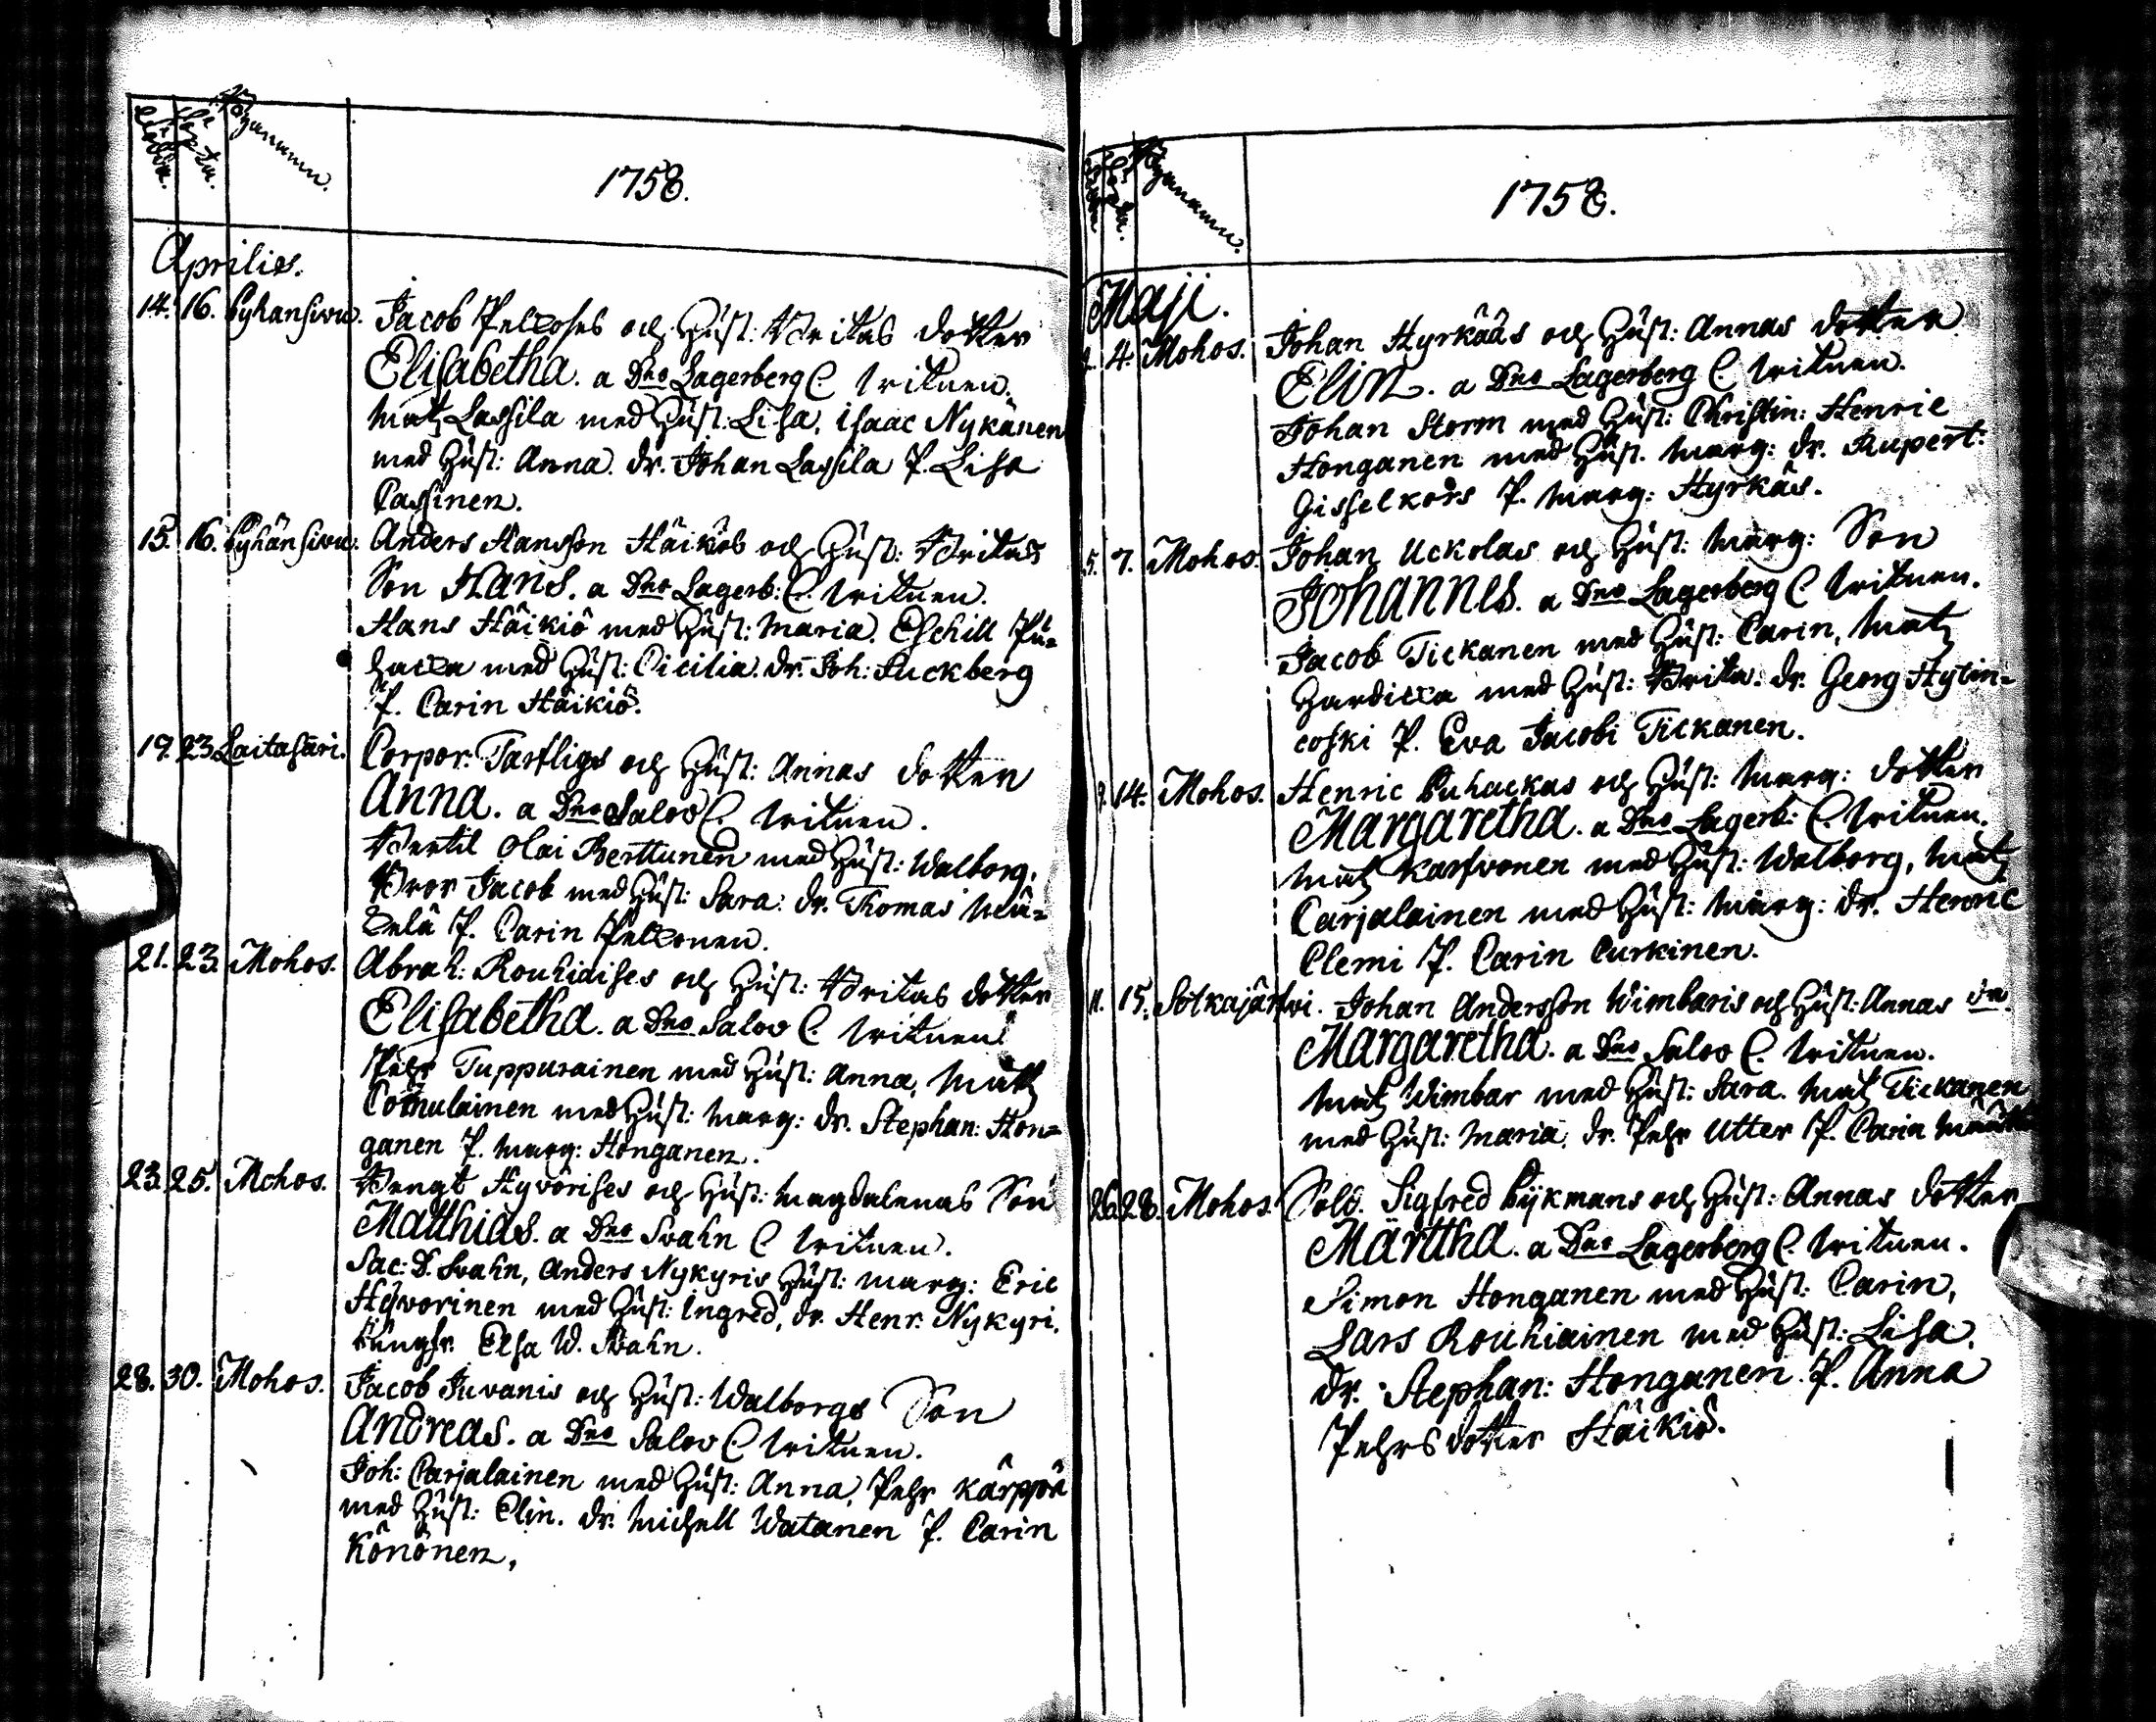 Födde.
Döpte.
Byanamn.
1758.
Aprilis.
14. 16. Pyhänsivu. Jacob Peltoses och Hust: Britas dotter
Elisabetha. a Dno Lagerberg C. Witnen.
Matz Lassila med Hust: Lisa, Isaac Nykänen
med Hust: Anna. dr. Johan Lassila P. Lisa
Cassinen.
15. 16. Pyhänsivu. Anders Hansson Häikiös och Hust: Britas
Son Hans. a Dno Lagerb: C. Witnen.
Hans Häikiö med Hust: Maria. Eschill Pu-
hacka med Hust: Cicilia. dr. Joh: Suckberg
P. Carin Häikiö.
19. 23. Laitasari. Corpor: Tarfligs och Hust: Annas dotter
Anna. a Dno Salov C. Witnen.
Bertil Olai Berttunen med Hust: Walborg,
Bror Jacob med Hust: Sara. dr. Thomas Mu-
P. Carin Peltonen.
21. 23. Mohos. Abrah: Rouhiaises och Hust: Britas dotter
Elisabetha. a Dno Salov C. Witnen.
Pehr Tuppurainen med Hust: Anna, Matz
Comulainen med Hust: Marg: dr. Stephan: Hon-
ganen P. Marg: Honganen.
23. 25. Mohos. Bengt Hyvörises och Hust: Magdalenas Son
Matthias. a Dno Svahn C. Witnen.
Sac: D. Svahn, Anders Nykyris Hust: Marg: Eric
Hyvörinen med Hust: Ingred, dr. Henr: Nykyri.
Jungfr. Elsa W. Svahn.
28. 30. Mohos. Jacob Juvanis och Hust: Walborgs Son
Andreas. a Dno Salov C. Witnen.
Joh: Carjalainen med Hust: Anna, Pehr Kärppä
med Hust: Elin. dr. Michell Watanen P. Carin
Könönen,
Byanamn.
1758.
Maji.
4. Mohos. Johan Hyrkääs och Hust: Annas dotter
Elin. a Dno Lagerberg C. Witnen.
Johan Storm med Hust: Christin: Henric
Honganen med Hust. Marg: dr. Rupert:
Gisselkors P. Marg: Hyrkäs.
5. 7. Mohos. Johan Uckolas och Hust: Marg: Son
Johannes. a Dno Lagerberg C. Witnen.
Jacob Tickanen med Hust: Carin, Matz
Hardicka med Hust: Brita. dr. Georg Hytin-
coski P. Eva Jacobi Tickanen.
9. 14. Mohos. Henric Puhackas och Hust: Marg: dotter
Margaretha. a Dno Lagerb: C. Witnen.
Matz Karfvonen med Hust: Walborg, Matz
Carjalainen med Hust: Marg: dr. Henric
Clemi P. Carin Curkinen.
11. 15. Sotkajärfwi. Johan Andersson Wimbaris och Hust: Annas dr.
Margaretha. a Dno Salov C. Witnen.
Matz Wimbar med Hust: Sara. Matz Tickanen
med Hust: Maria, dr. Pehr Utter P. Carin
26. 28. Mohos. Sold. Sigfred Bykmans och Hust: Annas dotter
Märttha. a Dno Lagerberg C. Witnen.
Simon Honganen med Hust: Carin,
Lars Rouhiainen med Hust: Lisa.
dr. Stephan: Honganen. P. Anna
Pehrsdotter Häikiö.